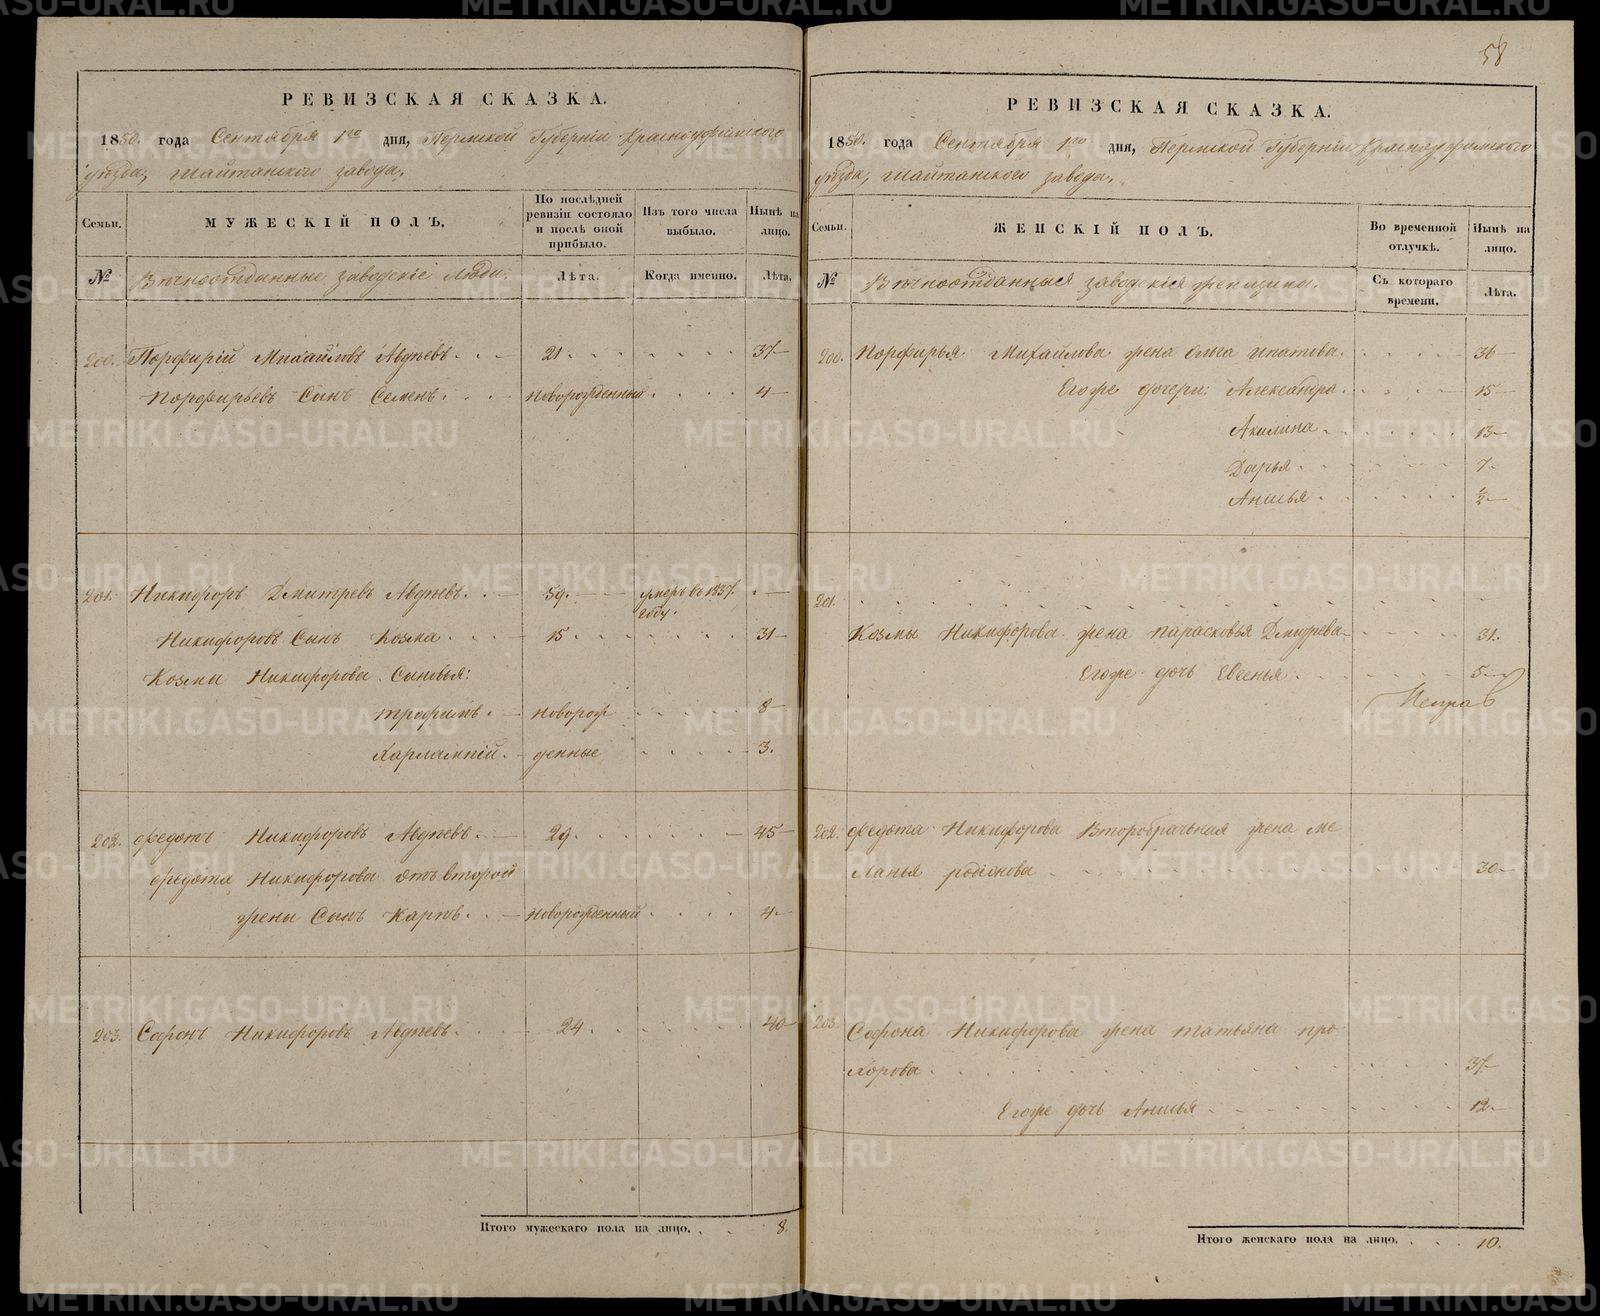 РЕВИЗСКАЯ СКАЗКА.
1850. года Сентября 1го дня, Пермской Губернiи Красноуфимского
уѣзда, Шайтанского завода.
Семьи.
МУЖЕСКIЙ ПОЛЪ.
По послѣдней ревизiи состояло и послѣ оной прибыло.
Изъ того числа выбыло.
Нынѣ на лицо.
№
Вѣчноотданные заводскiе Люди.
Лѣта.
Когда именно.
Лѣта.
200. Порфирiй Михайловъ Авдѣевъ. 21. 37
Порфирьевъ Сынъ Семенъ. новорожденный 4
201. Никифоръ Дмитревъ Авдѣевъ. 59. умеръ въ 1837.
году.
Никифоровъ Сынъ Козма 15 31
Козмы Никифорова Сыновья:
Трофимъ. новорож 8
Харлампiй. денные 3.
202. Федотъ Никифоровъ Авдѣевъ. 29. 45
Федота Никифорова отъ второй
жены Сынъ Карпъ. новорожденный 4
203. Софонъ Никифоровъ Авдѣевъ. 24. 40
Итого мужескаго пола на лицо. 8.
58
РЕВИЗСКАЯ СКАЗКА.
1850. года Сентября 1го дня, Пермской Губернiи Красноуфимского
уѣзда, Шайтанского завода.
Семьи.
ЖЕНСКIЙ ПОЛЪ.
Во временной отлучкѣ.
Нынѣ на лицо.
№
Вѣчноотданныя заводскiя женщины.
Съ котораго времени.
Лѣта.
200. Порфирья Михайлова жена Ольга Ипатова. 36
Егоже дочери: Александра 15
Акилина 13
Дарья 7.
Анисья ½
201.
Козмы Никифорова жена Парасковья Дмитрева 31.
Егоже дочь Евгенья 5
202. Федота Никифорова Второбрачьная жена Ме
ланья родiонова 30
203. Софона Никифорова жена татьяна про
хорова 37
Егоже дочь Анисья 12.
Итого женскаго пола на лицо. 10.
METRIKI.GASO-URAL.RU